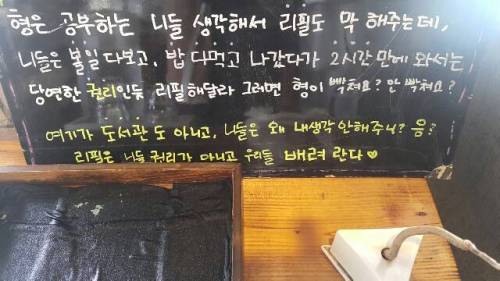 형은 공부하는 니들 생각해서 리필도 막 해주는데,
니들은 볼일 다보고, 밥 다먹고 나갔다가 2시간 만에 와서는
당연한 권리인듯 리필해달라 그러면 형이 빡쳐요? 안 빡쳐요?
여기가 도서관도 아니고, 니들은 왜 내생각 안해주니? 응?
리필은 니들 권리가 아니고 우리들 배려 란다♥